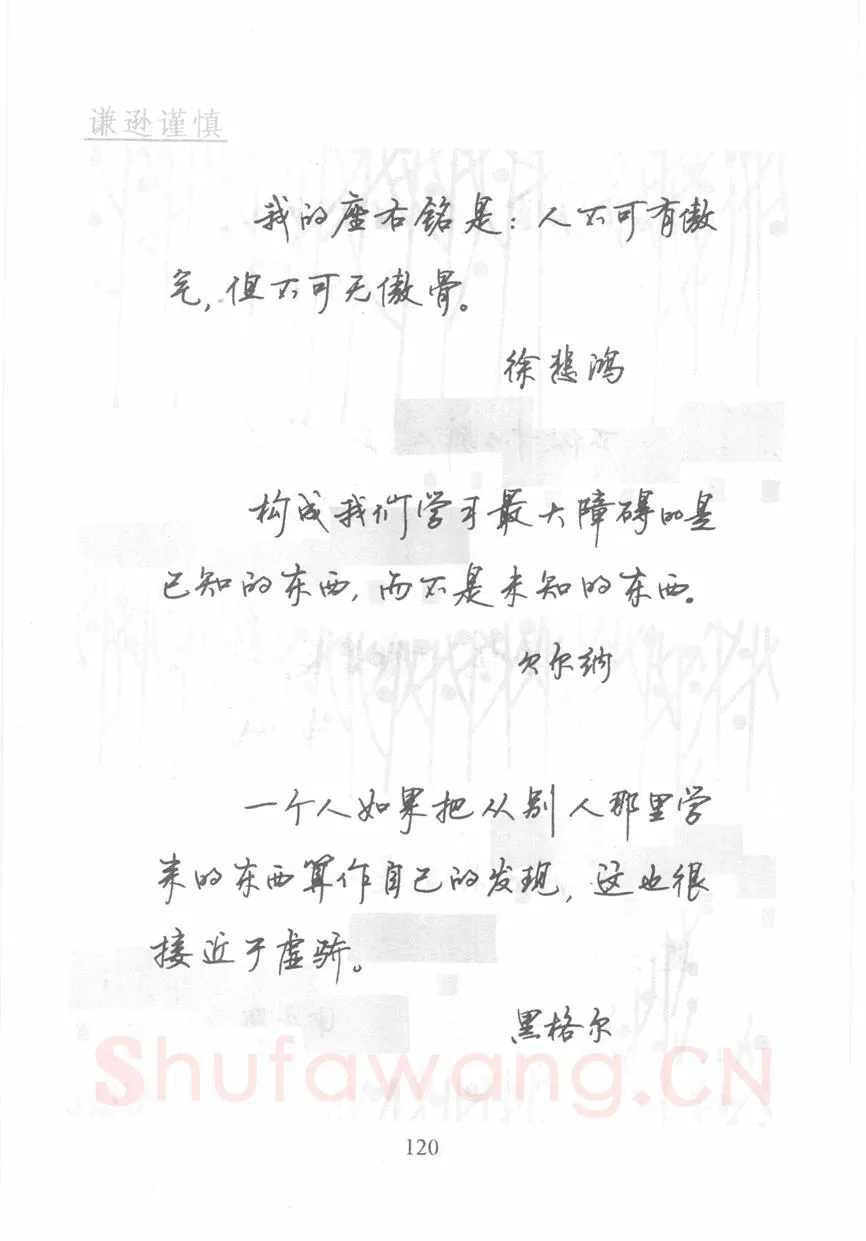 谦逊谨慎
我的座右铭是：人不可有傲
气，但不可无傲骨。
徐悲鸿
构成我们学习最大障碍的是
已知的东西，而不是未知的东西。
欠尔纳
一个人如果把从别人那里学
来的东西算作自己的发现，这也很
接近于虚骄。
黑格尔
Shufawang.CN
120